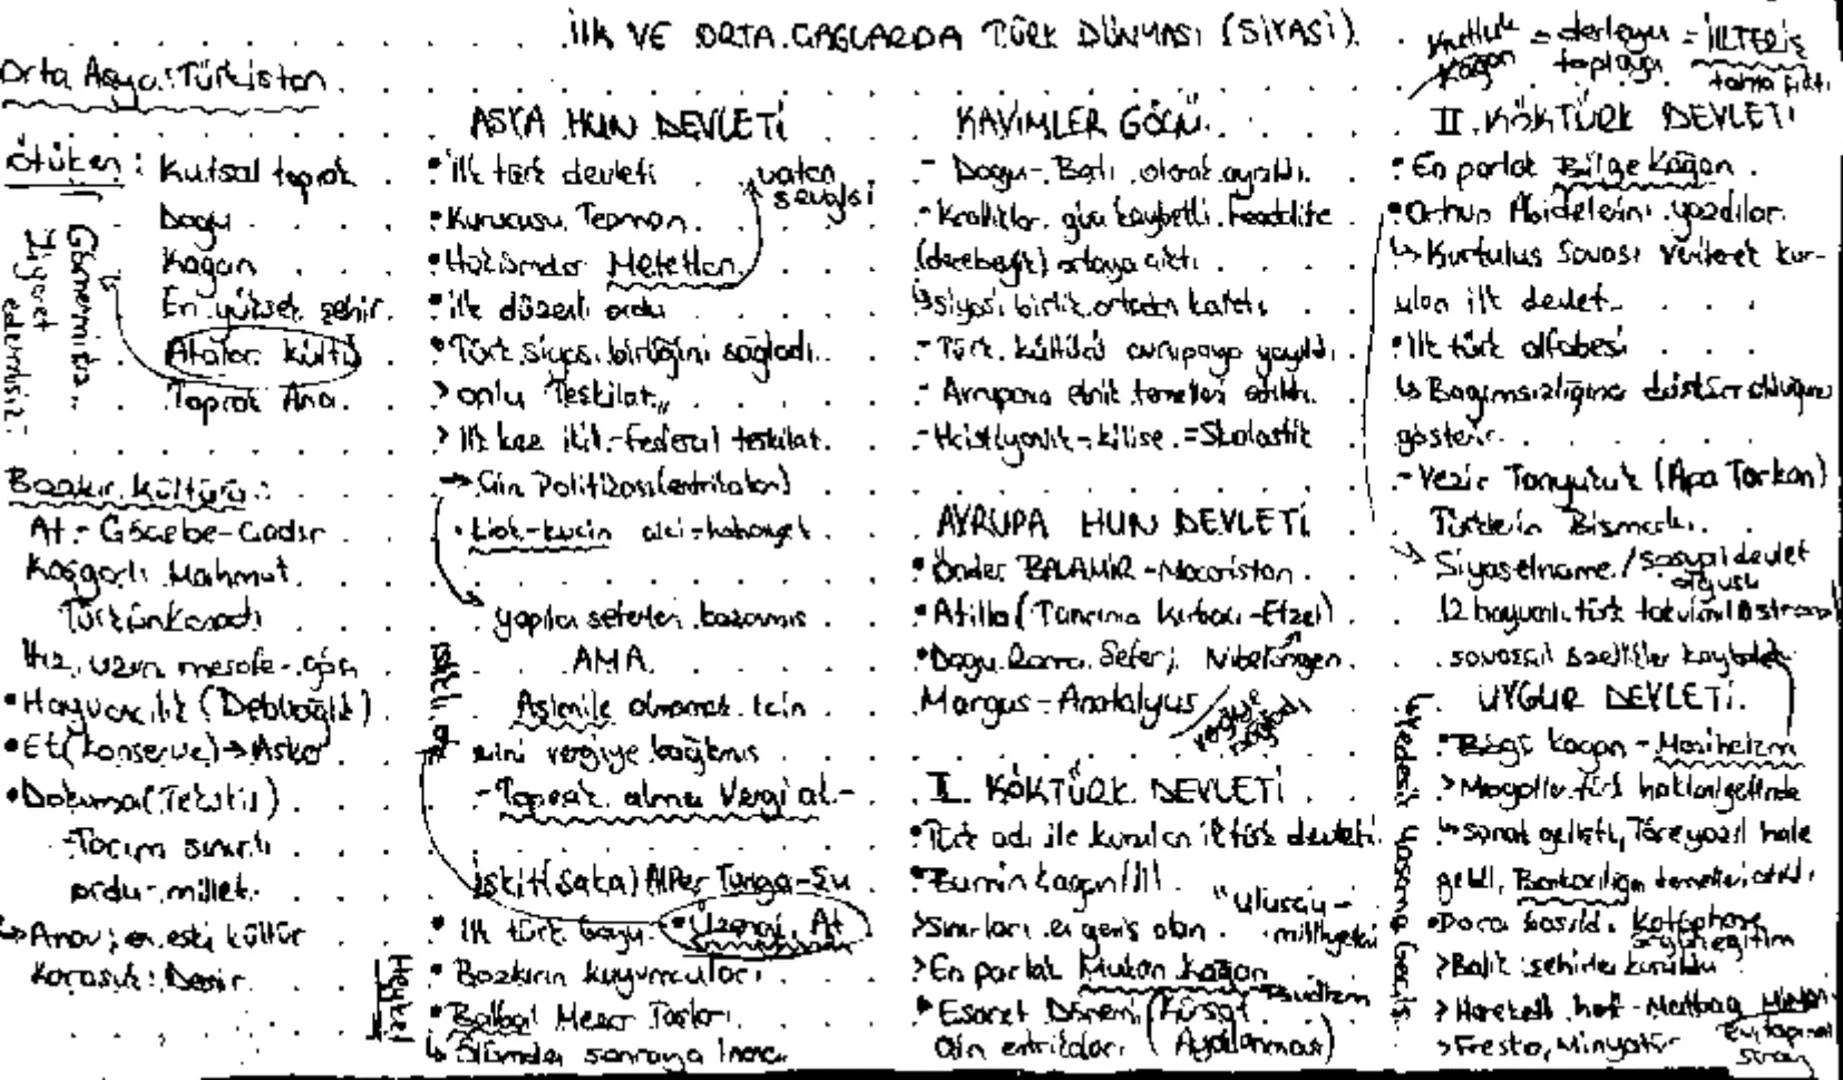 İlk VE ORTA ÇAGLARDA TÜRK DÜNYASI (SİYASİ)
Orta Asya: Türkistan
Ötüken: Kutsal toprak
Dogu
Kagan
En yüksek şehir.
Atalar kültü
Toprak Ana.
Görmemişta
Ziyaret edermisiz:
Bozkır kültürü:
At - Göçebe - Çadır
Kaşgarlı Mahmut.
Türkün Kanadı
Hız, uzun mesafe - göç
• Hayvancılık (Debbağlık)
• Et (konserve) → Asker
• Dokuma (Tekstil)
- Tarım sınırlı
ordu-millet.
↳ Anav; en eski kültür
Karasuk: Demir
ASYA HUN DEVLETİ
• İlk türk devleti
• Kurucusu Teoman.
vatan sevgisi
• Hakimdar Metettan
• İlk düzenli ordu
• Türk siyasi birliğini sağladı.
> onlu Teşkilat,,
> İlk kez ikili - Federal teşkilat.
→ Çin Politikası (entrikaları)
• Liok-kucin
yapılan seferleri kazanmış
AMA
Asimile olmamak için
çini vergiye bağlamış
- Toprak alma Vergi al -
İskit (Saka) Alper Tunga - Şu
• İlk türk boyu • Üzengi, At
• Bozkırın kuyumcuları
• Balbal Mezar Taşları
↳ Ölümden sonraya inanç
Heykel
KAVİMLER GÖÇÜ
- Dogu - Batı olarak ayrıldı.
- Krallıklar güç kaybetti. Feodalite
(derebeylik) ortaya çıktı
↳ siyasi birlik ortadan kalktı
- Türk kültürü avrupaya yayıldı.
- Avrupanın etnik temelleri atıldı.
- Hristiyanlık - kilise = Skolastik
AVRUPA HUN DEVLETİ
• Önder BALAMİR - Macaristan
• Atilla (Tanrının kırbacı - Etzel)
• Dogu Roma Seferi Nibelungen
Margus - Anatolyus
vergiye bağladı
I. KÖKTÜRK DEVLETİ
• Türk adı ile kurulan ilk türk devleti.
• Bumin kagan
"Ulusçu - milliyetçi
> Sınırları en geniş olan
> En parlak Mukan kagan
Budizm
• Esaret Dönemi (Kürşat Ayaklanması)
Çin entrikaları
Kutluk Kagan = derleyen toplayan = İLTERİŞ
II. KÖKTÜRK DEVLETİ
• En parlak Bilge Kağan
• Orhun Abidelerini yazdılar.
↳ Kurtulus Savası vererek kur-
ulan ilk devlet.
• İlk türk alfabesi
↳ Bagımsızlığına düşkün olduğunu
gösterir.
- Vezir Tonyukuk (Apa Tarkan)
Türklerin Bismarkı.
Siyasetname / sosyal devlet olgusu
12 hayvanlı türk takvimi
savaşçıl özellikler kaybeder
UYGUR DEVLETİ.
• Bögü kagan - Maniheizm
↳ Yerleşik Yaşama Geçiş.
↳ sanat gelişti, Töre yazıl hale
geldi, Bankacılığın temelleri atıldı
• Para basıldı.
> Balık: şehirler kuruldu
> Hareketli harf - Matbaa
> Fresko, Minyatür